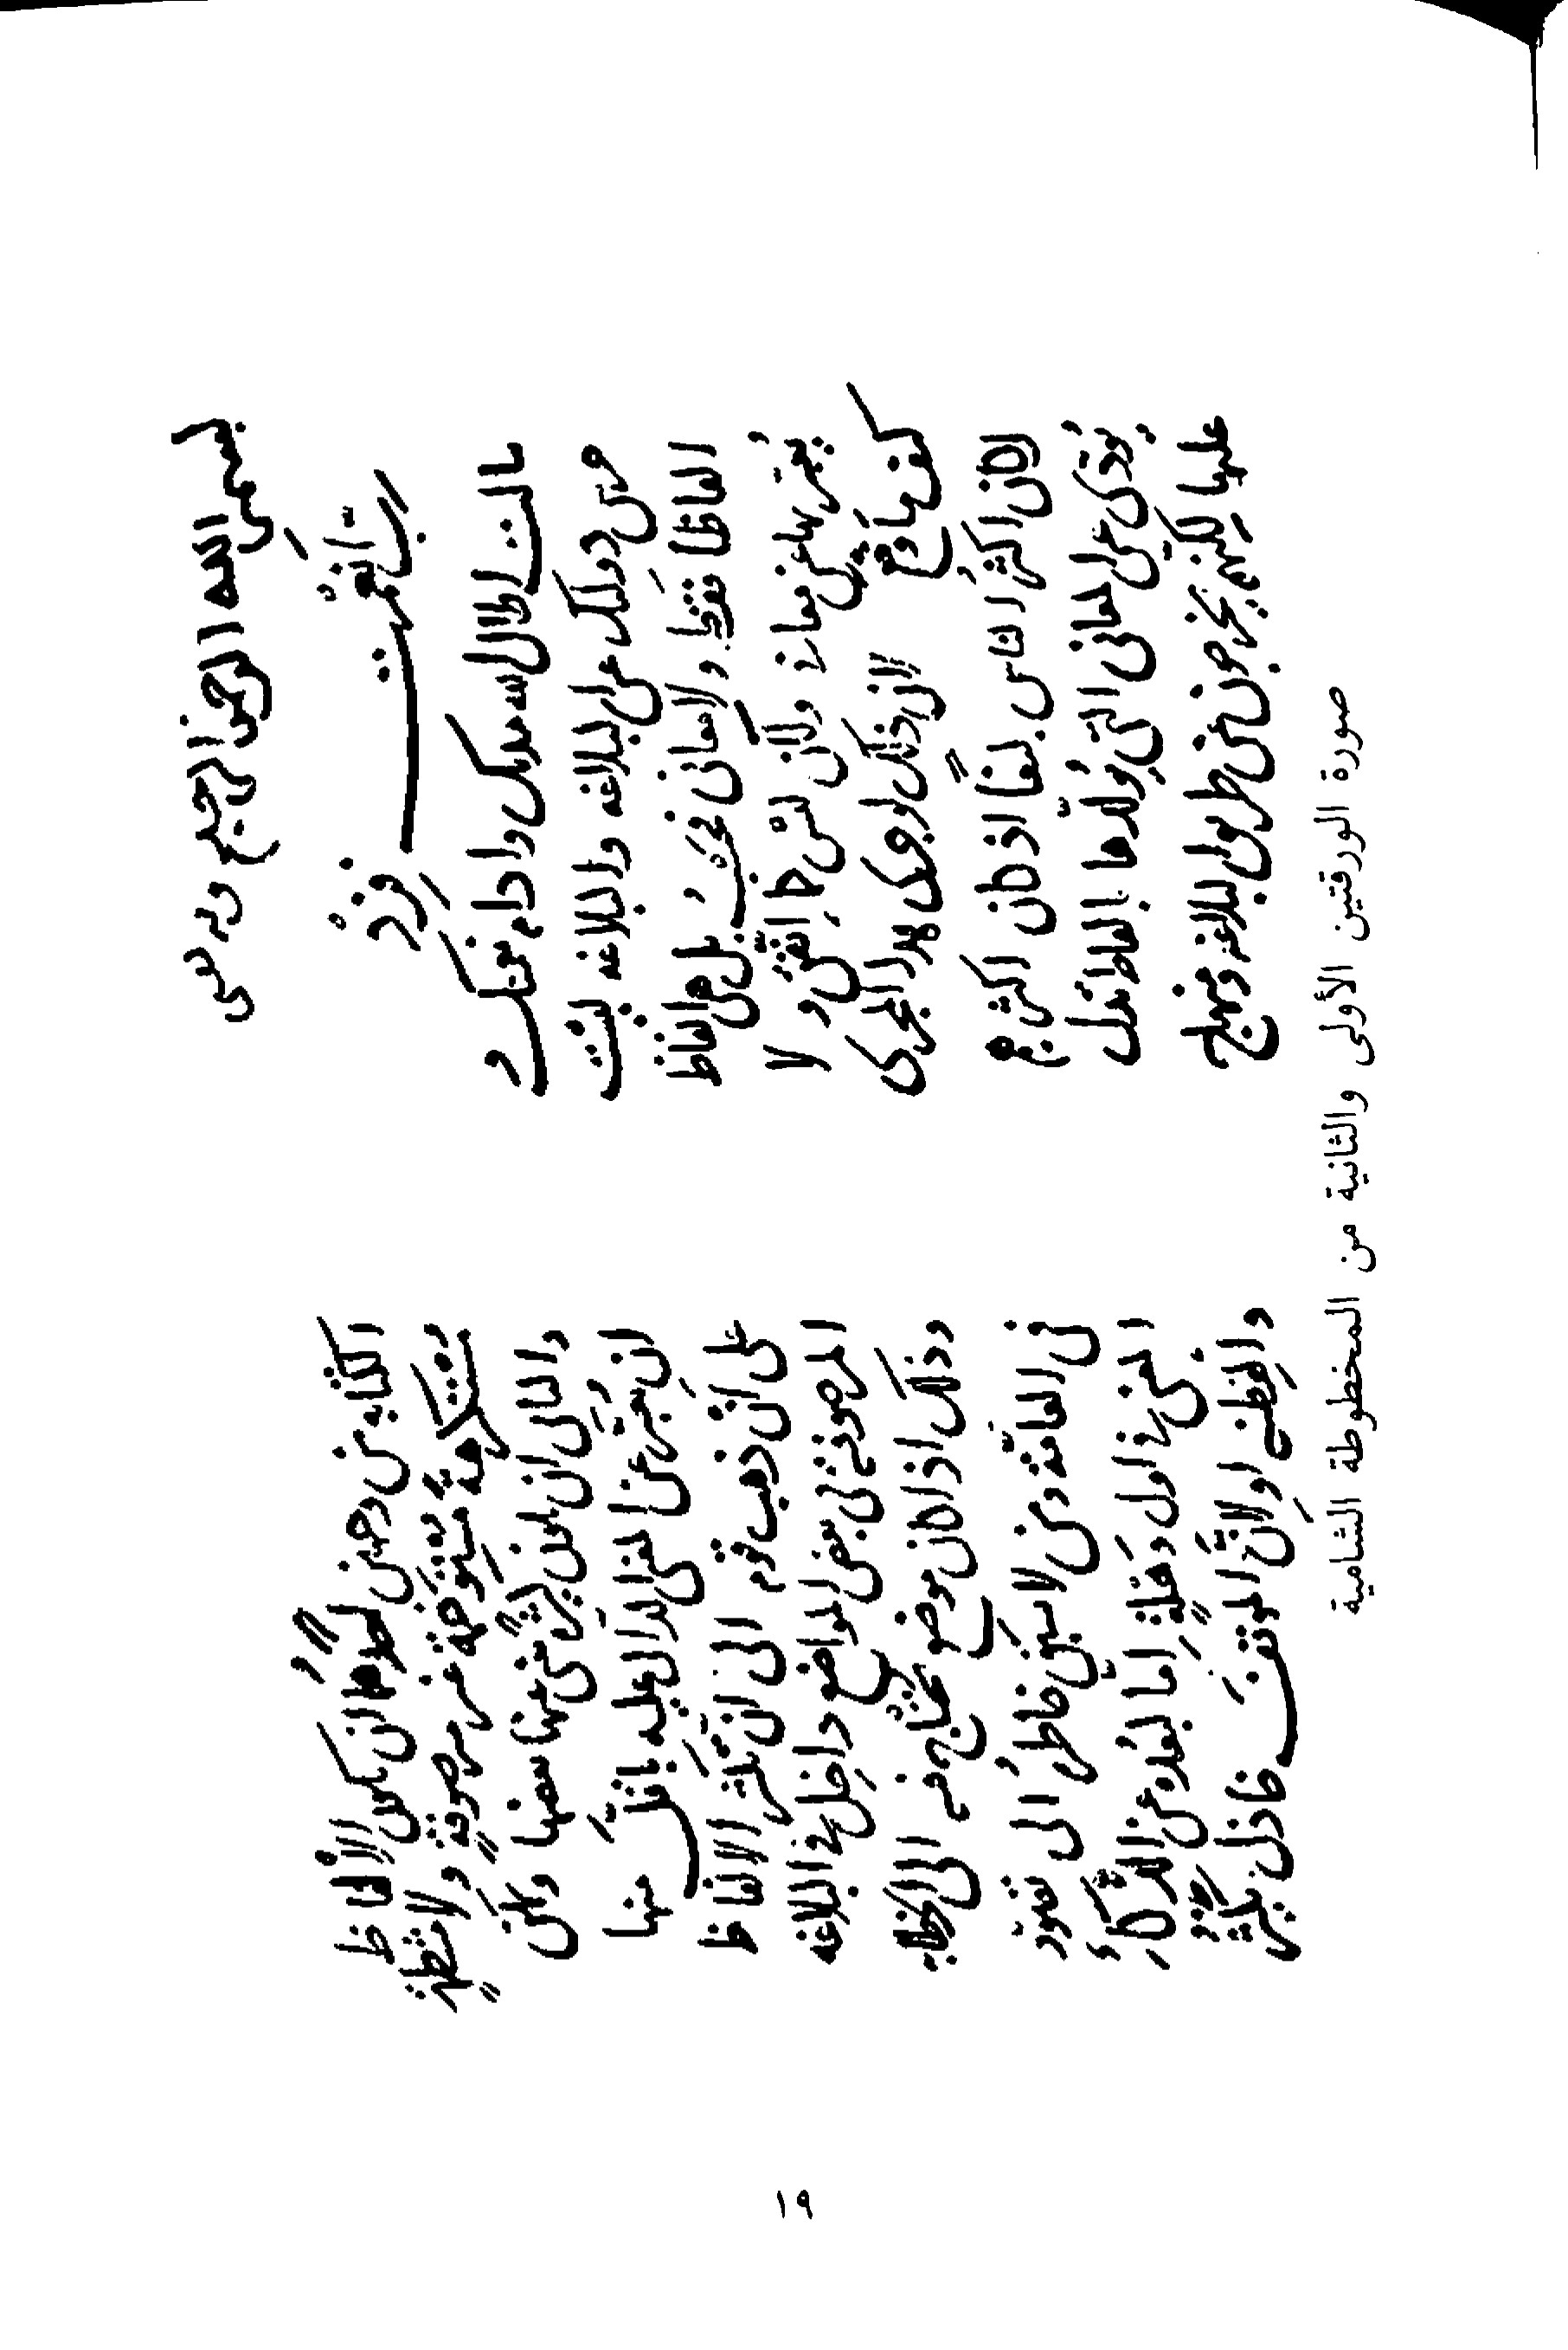 بسم الله الرحمن الرحيم وبه نستعين
رب أنعمت فزد
سالت اطال الله مدتك وادام نعمتك
وحرس دولتك على البلاغه والبلاغه ليست
الفاظا فقط ولا معاني فحسب بل هي الفاظ
يعبر بها عن معان ولكن ليس كما اتفق ولا
كيف ما وقع لان ذلك لو جرى هذا المجرى
لكان اكثر الناس بليغا اذ كان اكثرهم
يؤدي عن المعاني التي يولدها بالفاظ تدل
عليها لكنهم يخرجون عن طريق البلاغه ومنهج
الكتابه من وجهين احدهما ان تكون الالفاظ
مستكرهة مستوخمة غير مرصوفة ولا منتظمة
والثاني ان تكون كثيرة يغني عنها بعضها ويمكن
ان يعبر عن المعنى الدال عليه باقل منها
على أن ذهب قوم الى ان تكثر الالفاظ
المرصوفة في بعض المواضع داخل في البلاغه
وذلك اذا كان موضع يحتاج فيه الى الخطابه
في العامة ومن لا يسبق خاطره الى تصور
المعنى في اول وهلة امّا لبعده عن الذكاء
والفطنه او لان الموقف حافل بكثرة
صورة الورقتين الأولى والثانية من المخطوطة الشامية
١٩